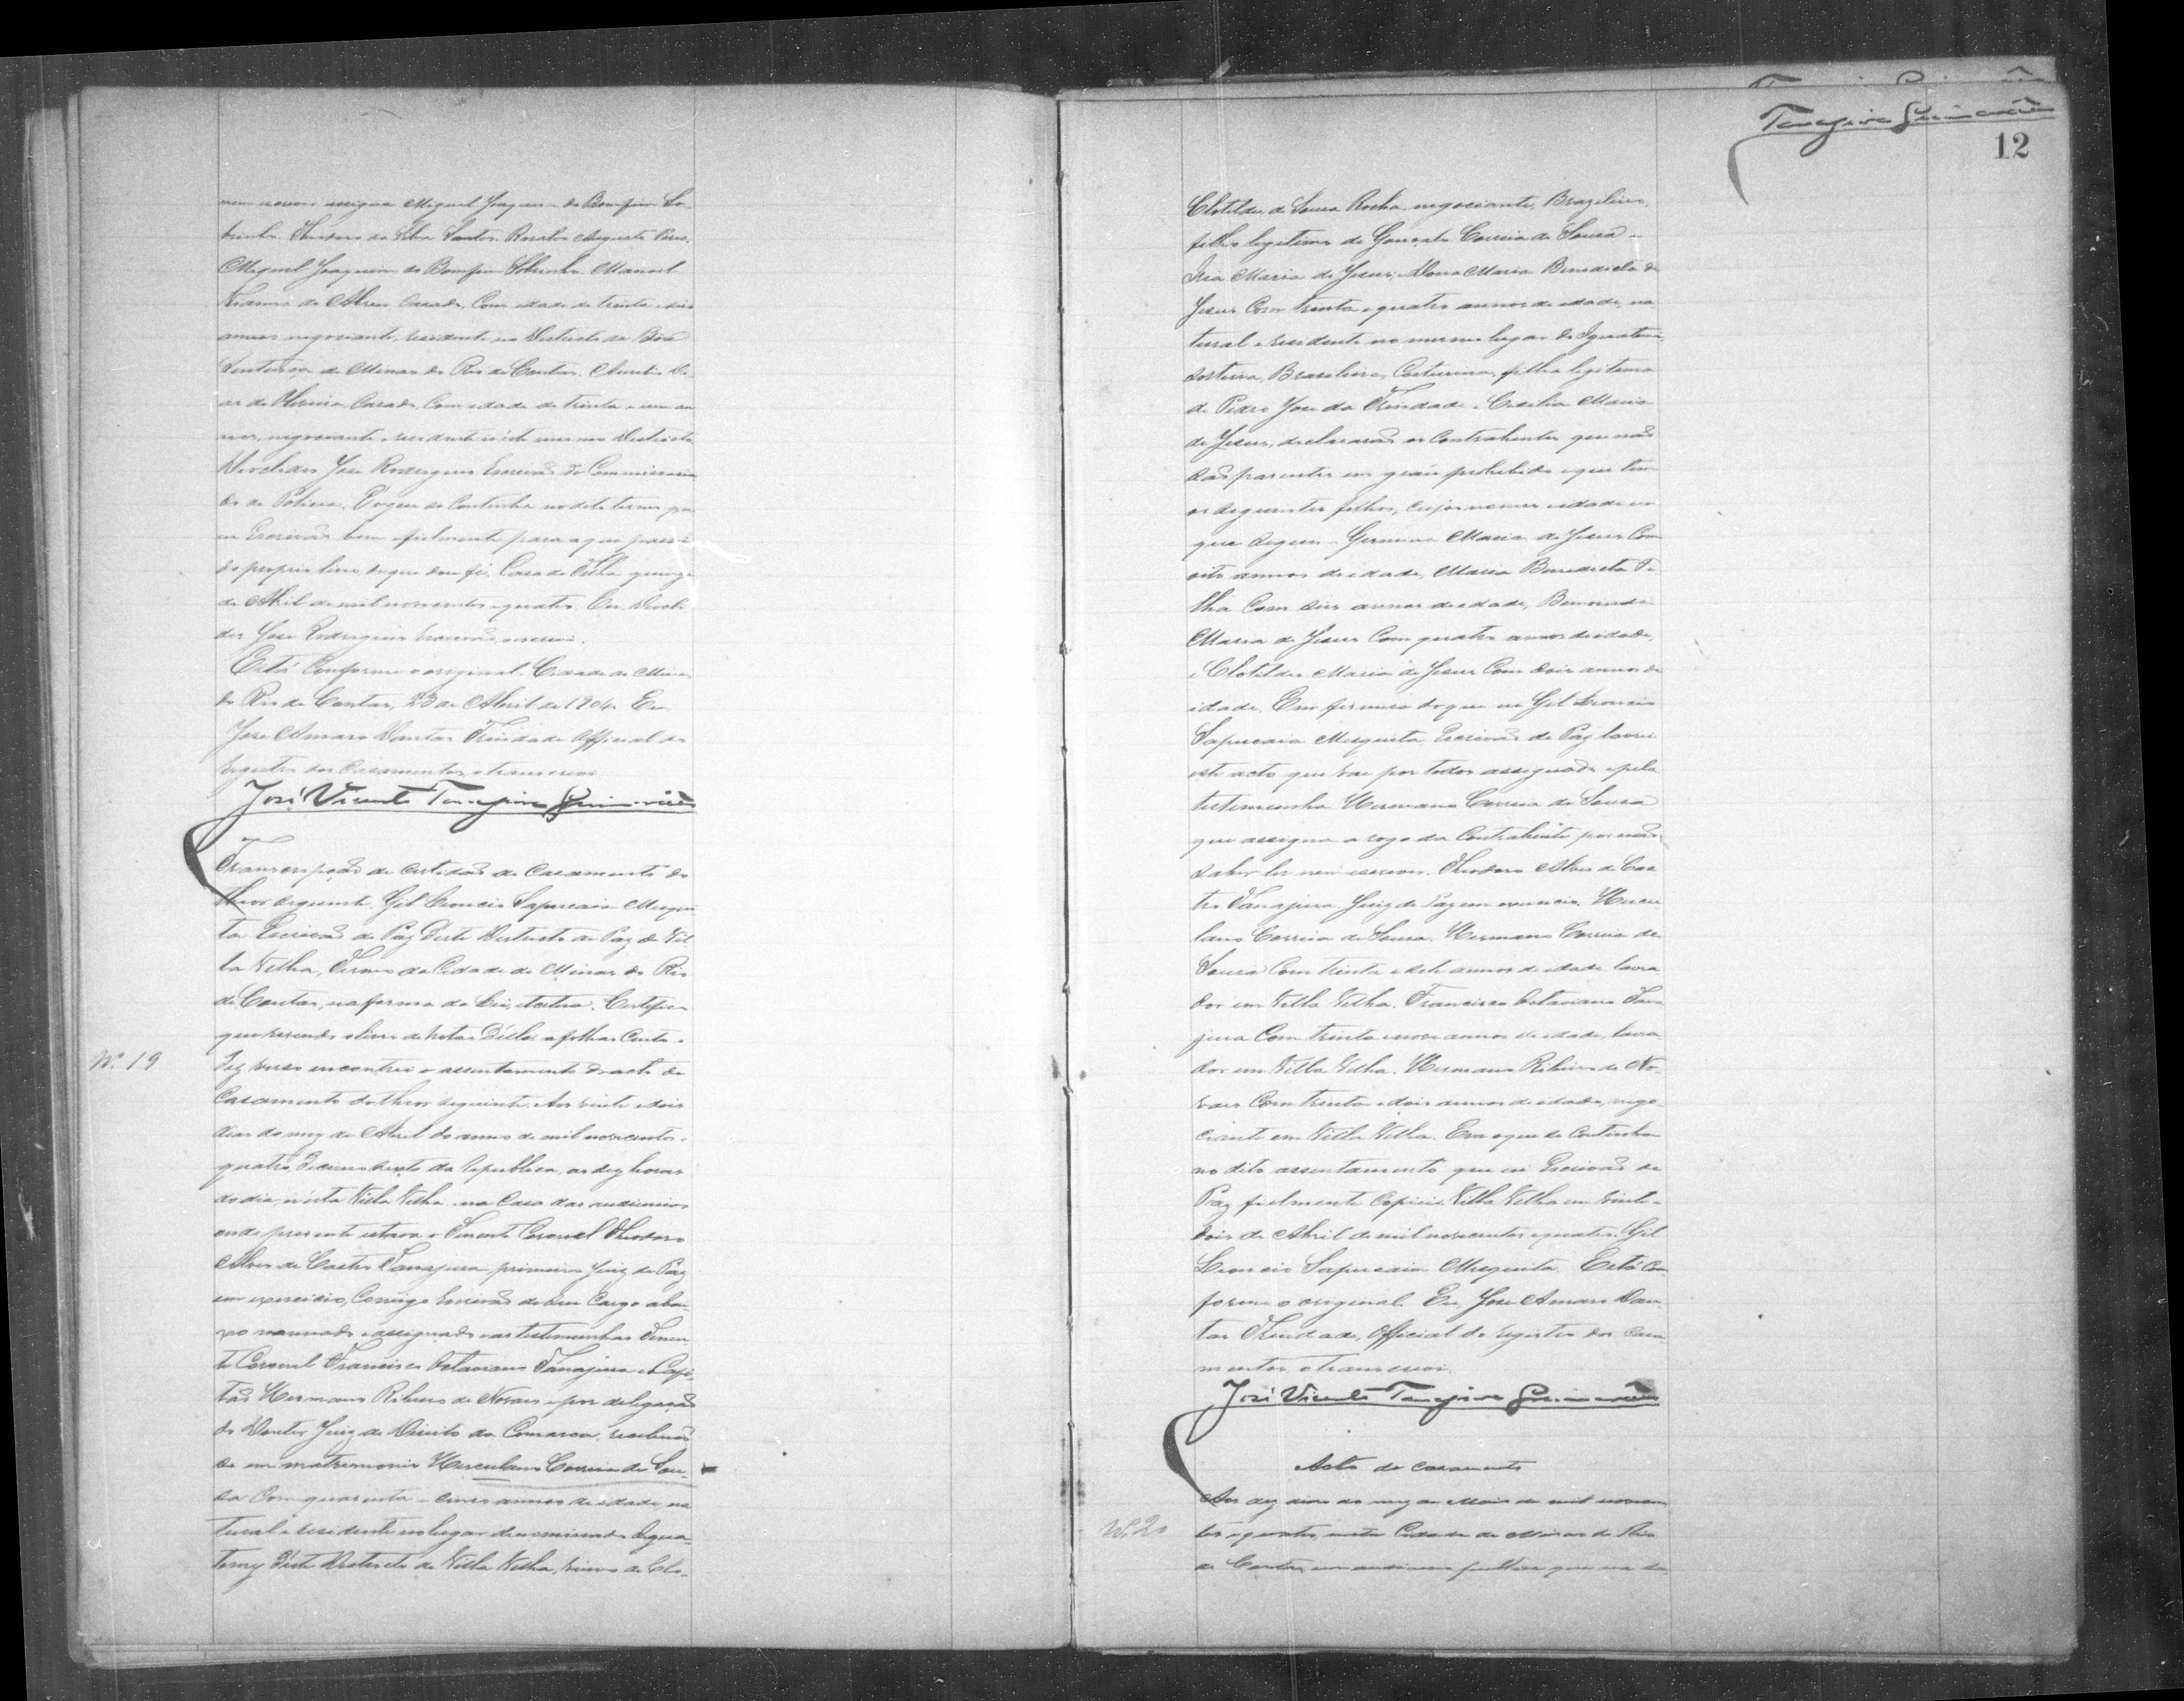 nem escrever assigna Miguel Joaquim do Bomfim So-
brinho. Theodoro da Silva Santos. Rosalvo Augusto Pires.
Miguel Joaquim do Bomfim Sobrinho. Manoel
de Abreu Casado, Com idade de trinta e dois
annos negociante, residente no Districto da Bôa
Sentença de Minas do Rio de Contas. Aurelio
de Oliveira, Casado, Com idade de trinta e um an-
nos, negociante, residente n'este mesmo Districto
Deoclides José Rodrigues Escrivão do Commissaria-
do de Policia. É o que se Continha no dito termo que
eu Escrivão bem e fielmente para aqui passei
do proprio livro do que dou fé. quinze
de Abril de mil novecentos e quatro. Eu Deocli-
des José Rodrigues Escrivão, escrevi.
Está Conforme o original. Cidade de Minas
do Rio de Contas, 23 de Abril de 1904. Eu
José Amaro Dantas Trindade Official do
registro dos Casamentos, o transcrevi.
José Vicente Tanajura Guimarães
Transcripção da Certidão de Casamento do
theor seguinte. Gil Leoncio Sapucaia Mesqui-
ta Escrivão de Paz d'este Districto de Paz de Vil-
la Velha, Termo da Cidade de Minas do Rio
de Contas, na forma da Lei, etc. Certifico
que revendo o livro de Notas d'elle a folhas Cento e
Nº 19
dez verso encontrei o assentamento do acto de
Casamento do theor seguinte. Aos vinte e dois
dias do mez de Abril do anno de mil novecentos e
quatro, decimo sexto da Republica, as dez horas
do dia, n'esta Villa Velha na Casa das audiencias
onde presente estava o Tenente Coronel Theodoro
Alves de Castro Tanajura, primeiro Juiz de Paz
em exercicio, Comigo Escrivão do seu Cargo abai-
xo nomeado e assignado e as testemunhas Tenen-
te Coronel Francisco Octaviano Tanajura e Capi-
tão Hermano Ribeiro de Novaes e por delegação
do Doutor Juiz de Direito da Comarca, receberão-
se em matrimonio Herculano Correia de Sou-
sa Com quarenta e cinco annos de idade, na-
tural e residente no lugar denominado Igua-
temy d'este Districto de Villa Velha, viuvo de Clo-
Tanajura Guimarães
12
Clotildes de Sousa Rocha, negociante, Brazileiro,
filho legitimo de Gonçalo Correia de Sousa e
Iria Maria de Jesus; e Dona Maria Benedicta de
Jesus Com trinta e quatro annos de idade, na-
tural e residente no mesmo lugar de Iguatemy,
solteira, Brasileira, Costureira, filha legitima
de Pedro José da Trindade e Cecilia Maria
de Jesus, declararão os Contrahentes que não
são parentes em gráu prohibido e que tem
os seguintes filhos, cujos nomes e idade são
que seguem Germina Maria de Jesus Com
oito annos de idade, Maria Benedicta
Com seis annos de idade,
Maria de Jesus Com quatro annos de idade,
e Clotildes Maria de Jesus Com dois annos de
idade. Em firmesa do que eu Gil Leoncio
Sapucaia Mesquita Escrivão de Paz lavrei
este acto que vae por todos assignado e pela
testemunha Hermano Correia de Sousa
que assigna a rogo da Contrahente por não
saber ler nem escrever. Theodoro Alves de Cas-
tro Tanajura Juiz de Paz em exercicio. Hercu-
lano Correia de Sousa. Hermano Correia de
Sousa Com trinta e sete annos de idade lavra-
dor em Villa Velha. Francisco Octaviano Tana-
jura Com trinta e nove annos de idade, lavra-
dor em Villa Velha. Hermano Ribeiro de No-
vaes Com trinta e dois annos de idade, nego-
ciante em Villa Velha. Era o que se Continha
no dito assentamento que eu Escrivão de
Paz fielmente Copiei. Villa Velha em vinte e
dois de Abril de mil novecentos e quatro. Gil
Leoncio Sapucaia Mesquita. Está Con-
forme o original. Eu, José Amaro Dan-
tas Trindade, Official do registro dos Casa-
mentos, o transcrevi.
José Vicente Tanajura Guimarães
Acto de casamento
Aos dez dias do mez de Maio de mil novecen-
Nº 20
tos e quatro, nesta Cidade de Minas do Rio
de Contas, em audiencia publica que na sa-